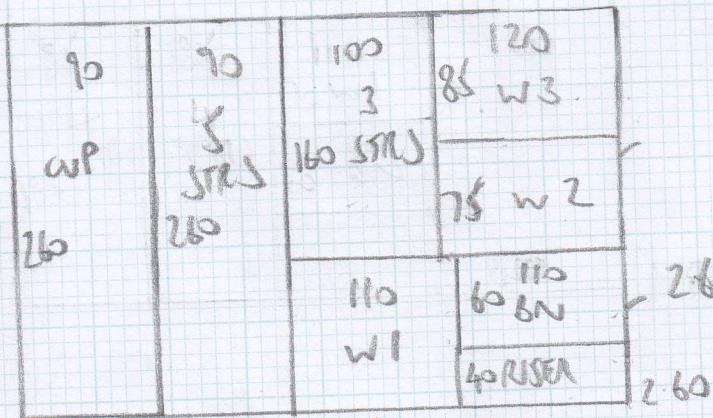 90
CUP
260
90
5
STRS
260
100
3
160 STRS
120
85 W3
75 W2
110
W1
110
60 BN
40 RISER
2.6
2.60